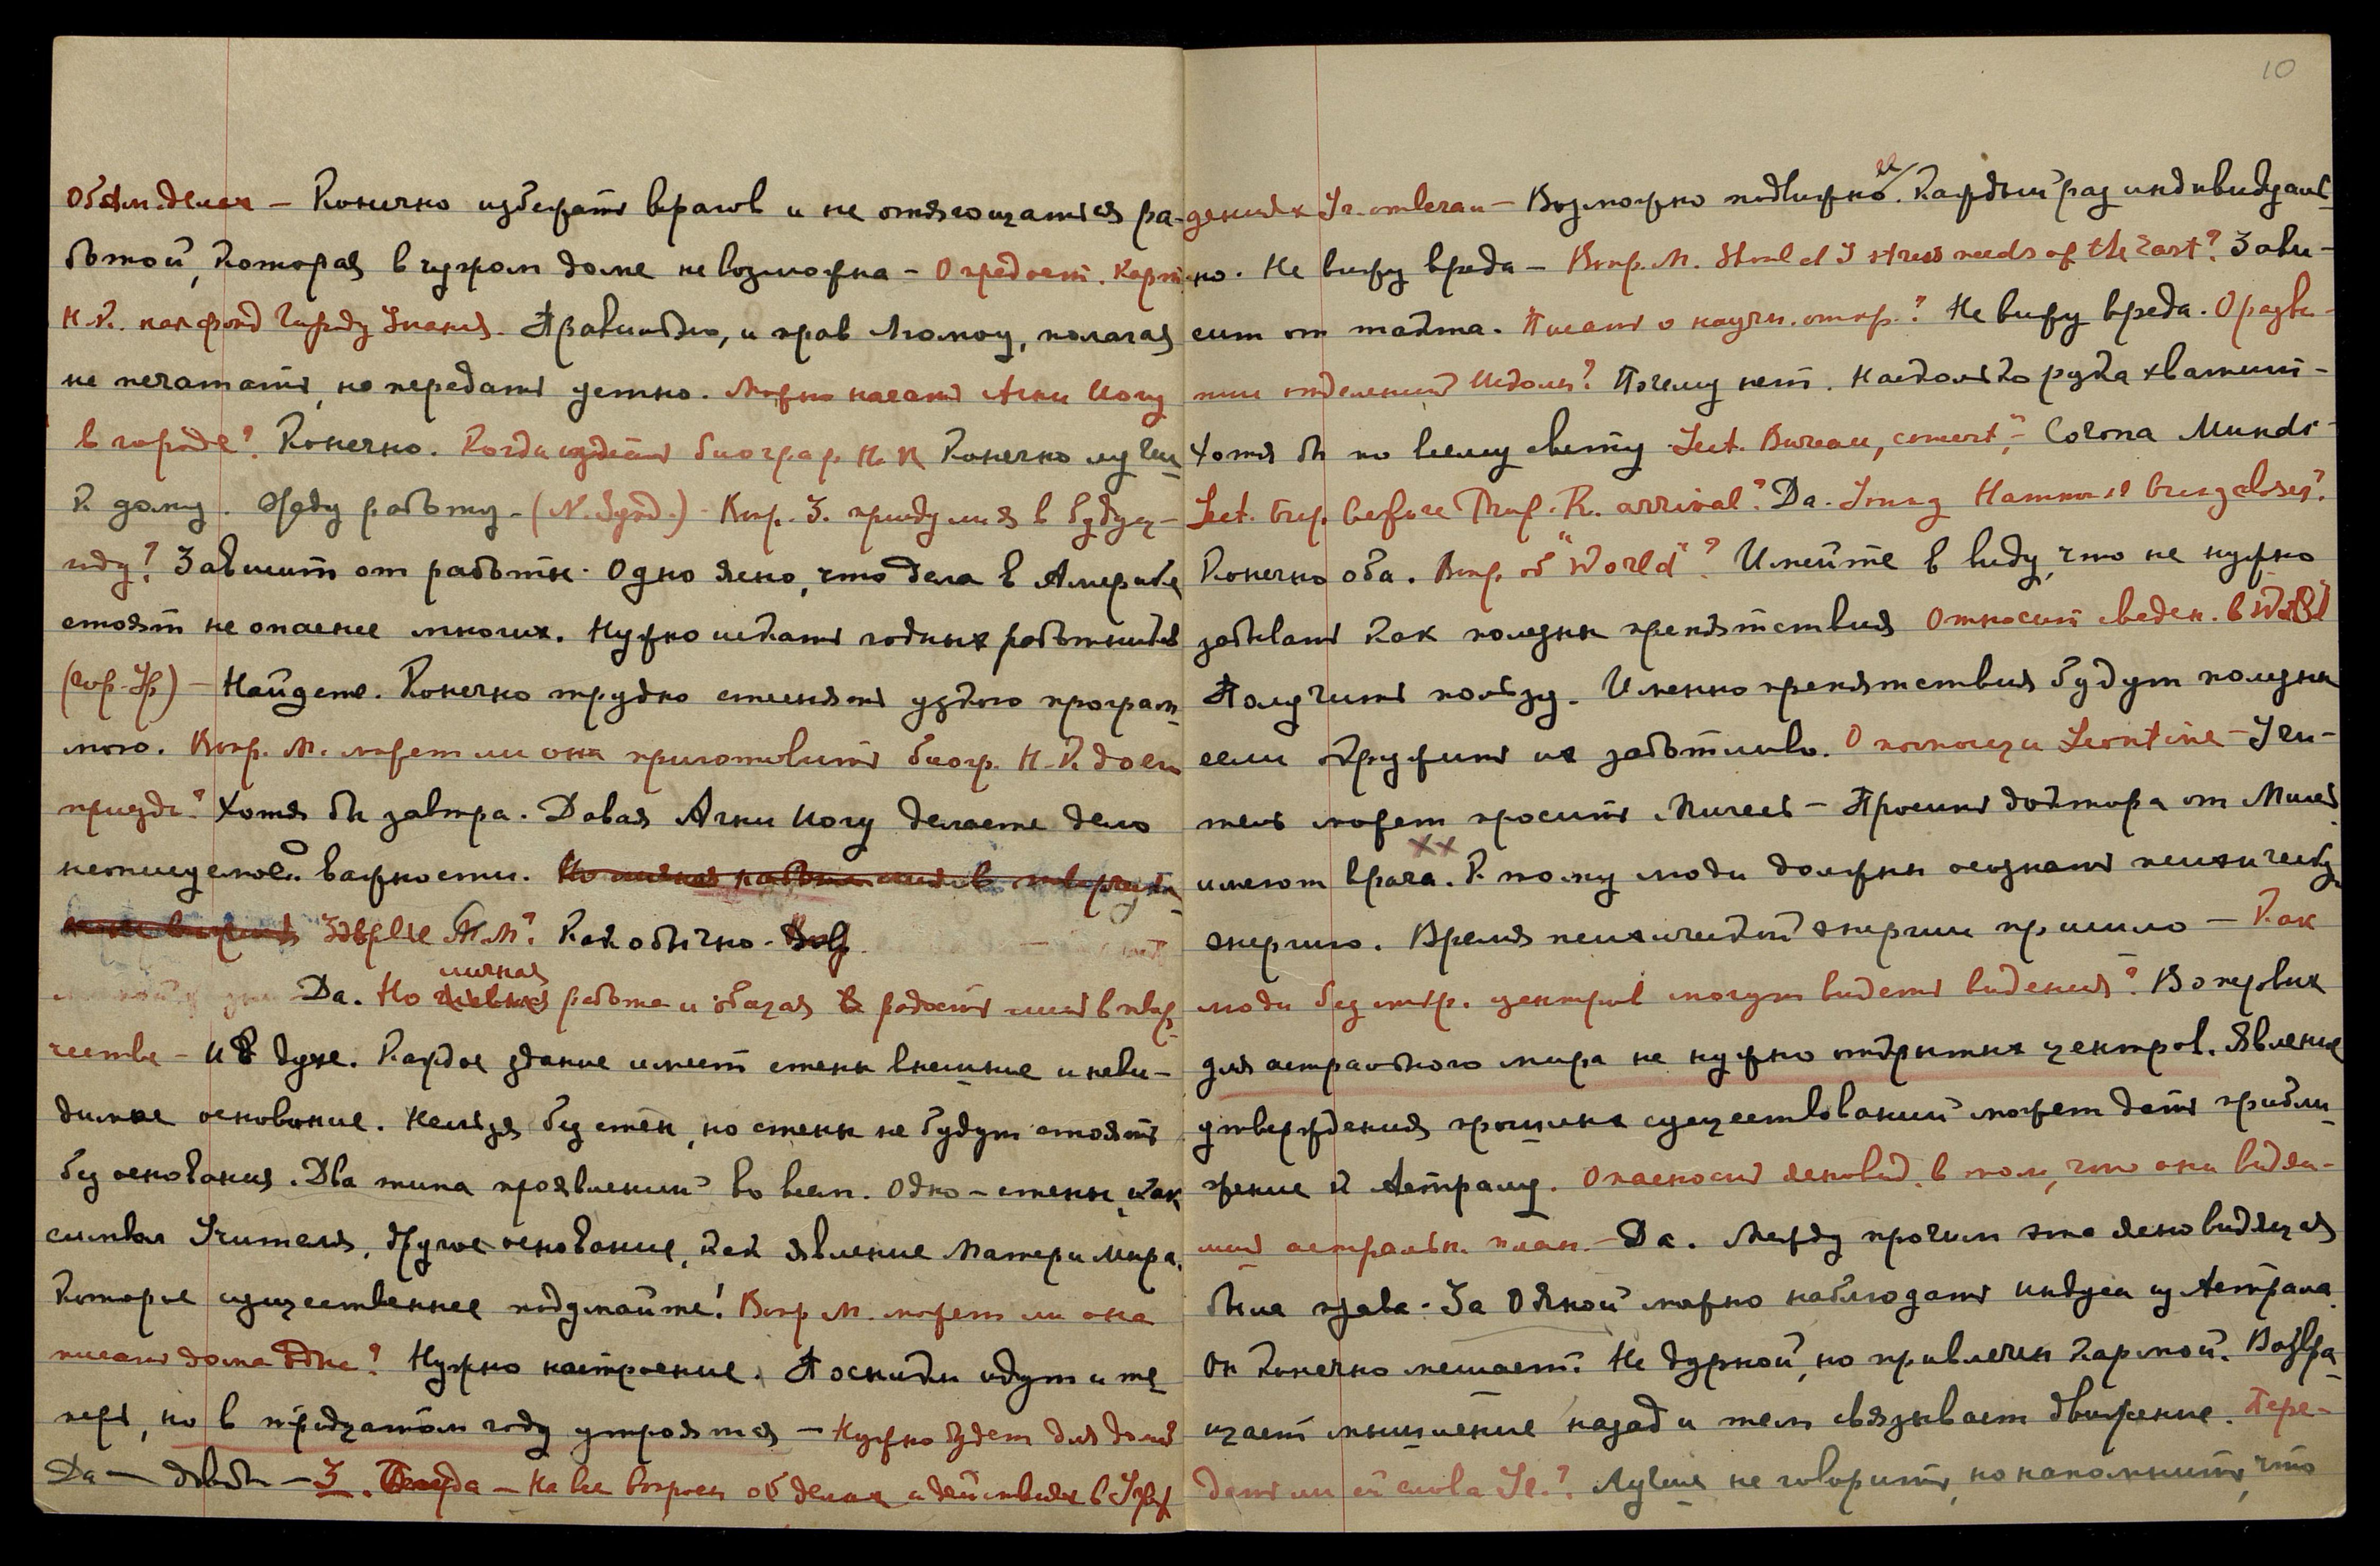 Объян. делах – Конечно избегать врагов и не отягощаться ра-
ботой, которая в чужом доме невозможна – О предост. карт
Н.К. как фонд Городу Знания. Правильно, и прав Люмоу, полагая
не печатать, но передать устно. Можно послать Агни Йогу
в городе? Конечно. Когда издать биограф. Н.К. Конечно лучше
к дому. Жду работу – (N. Synd.) – Вопр. З. приеду ли я в будущ-
году? Зависит от работы. Одно ясно, что дела в Америке
стоят не опаснее многих. Нужно искать годных работников
(гор. Ур) – Найдете. Конечно трудно сменять узкого програм-
много. Вопр. М. может ли она приготовить биогр. Н.К. до его
приезда? Хотя бы завтра. Давая Агни Йогу делаете дело
неотменяемой важности.
Как обычно.
Да. Но личная работа и общая в радости лишь в твор-
честве – И в духе. Каждое здание имеет стены внешние и неви-
димое основание. Нельзя без стен, но стены не будут стоять
без основания. Два типа проявлений во всем. Одно – стены, как
символ Учителя, другое основание, как явление Матери Мира.
Которое существеннее подумайте! Вопр М. может ли она
писать дома одна? Нужно настроение. Посылки идут и те-
перь, но в тридцатом году утроятся – Нужно будет для дома
Да – дабы – З. Правда – На все вопросы об делах и действиях в Учреж
10
дениях Уч. отвечал – Возможно подвижнее. Каждый раз индивидуаль-
но. Не вижу вреда – Вопр. М. Should I stress needs of the East? Зави-
сит от такта. Писать о научн. откр.? Не вижу вреда. О разви-
тии отделений Школы? Почему нет. Насколько рука хватит –
Хотя бы по всему свету. Lect. Bureau, concert, – Corona Mundi –
Lect. trip. before Prof. R. arrival? Да. Young Hammond bring closer?
Конечно оба. Вопр. об "World"? Имейте в виду, что не нужно
забывать как полезны препятствия Относит. сведен. в World
Получить пользу. Именно препятствия будут полезны
если окружить их заботливо. О помощи Leontine – Учи-
тель может просить Мисси – Просить доктора от Мисси
имеют врача. К тому люди должны осознать психическую
энергию. Время психической энергии пришло – Как
люди без откр. центров могут видеть видения? Во первых
для астрального мира не нужно открытых центров. Явление
утверждения прошлых существований может дать прибли-
жение к Астралу. Опасность ясновид. в том, что они видели
лишь астральн. план. – Да. Между прочим эта ясновидящая
была права. За Ояной можно наблюдать индуса из Астрала.
Он конечно мешает. Не дурной, но привлечен Кармой. Возвра-
щает мышление назад и тем связывает движение. Пере-
дать ли ей слова Уч.? Лучше не говорить, но напомнить, что